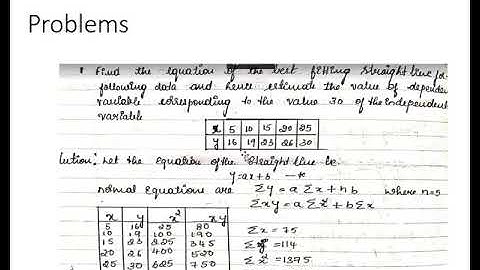 Problems
1 Find the equation of the best fitting straight line for
following data and hence estimate the value of dependent
variable corresponding to the value 30 of the independent
variable
x 5 10 15 20 25
y 16 19 23 26 30
lution: Let the equation of the straight line be
y=ax+b
normal equations are Σy = aΣx + nb where n=5
Σxy = aΣx² + bΣx
x y x² xy
5 16 25 80
10 19 100 190
15 23 225 345
20 26 400 520
25 30 625 750
Σx = 75
Σy = 114
Σx² = 1375